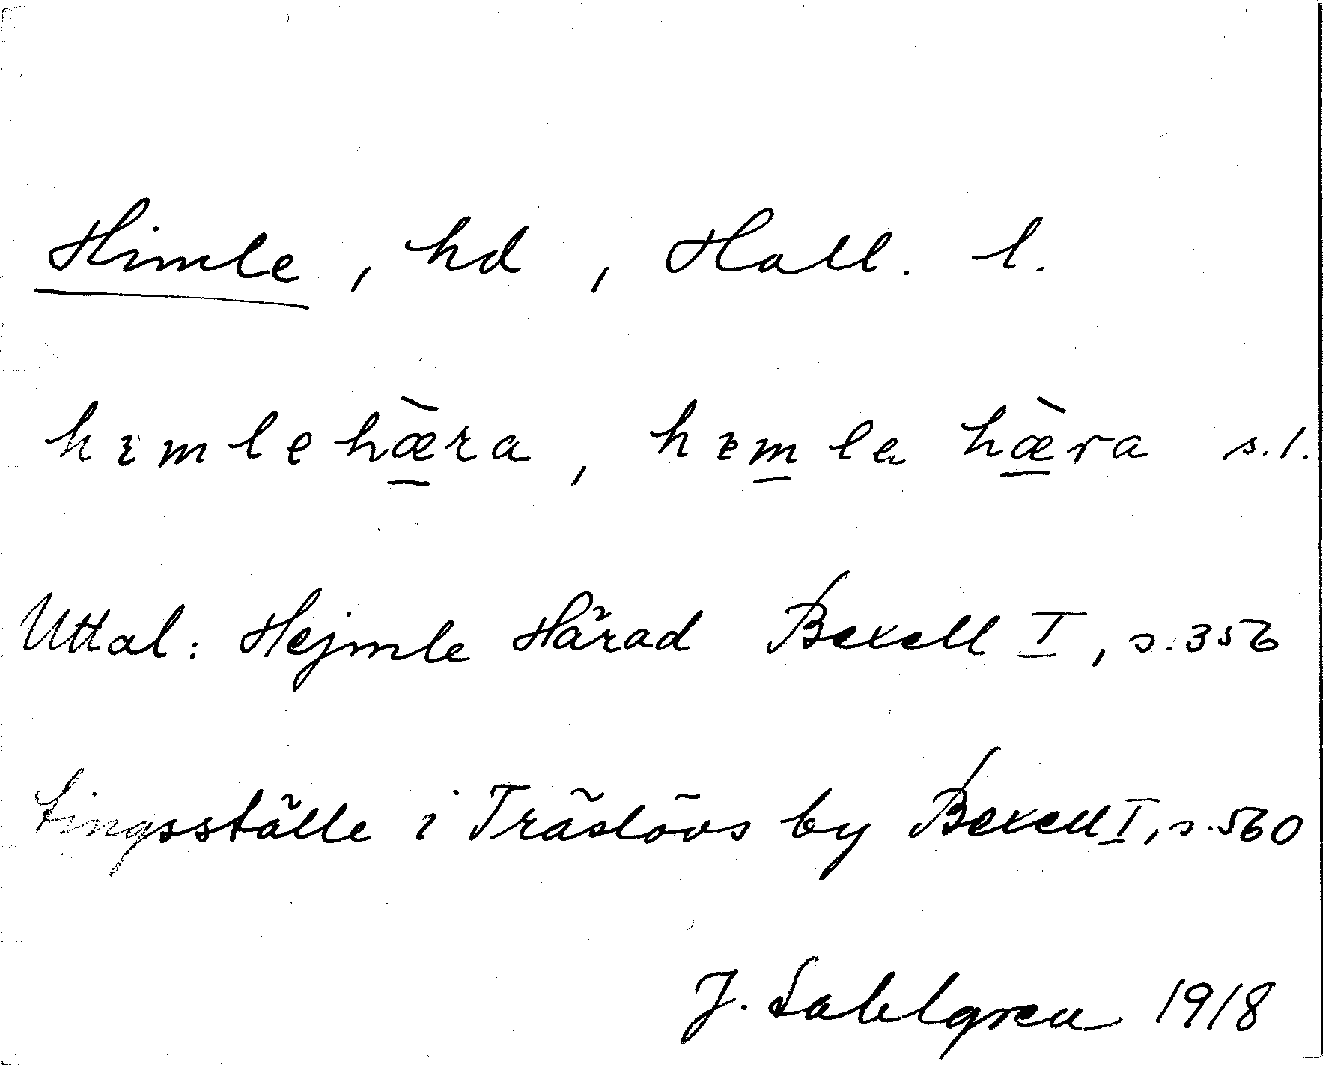 Himle, hd, Hall. l.
hɪmlehæ̀ra, hɪmla hæ̀ra s.l.
Uttal: Hejmle Härad Bexell I, s. 356
tingsställe i Träslövs by Bexell I, s. 560
J. Sahlgren 1918